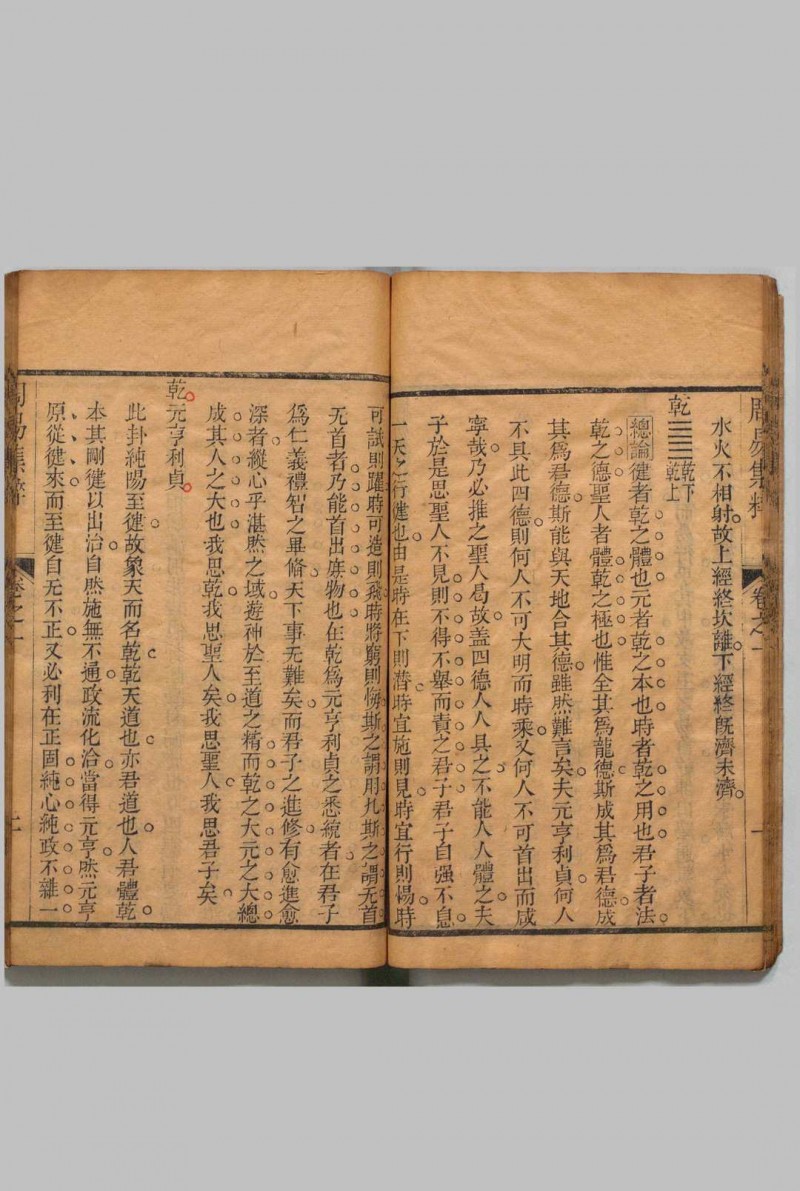 周易集粹 卷之一 一
水火不相射故上經終坎離下經終旣濟未濟
乾 乾下乾上
總論健者乾之體也元者乾之本也時者乾之用也君子者法
乾之德聖人者體乾之極也惟全其爲龍德斯成其爲君德成
其爲君德斯能與天地合其德雖然難言矣夫元亨利貞何人
不具此四德則何人不可大明而時乘又何人不可首出而咸
寧哉乃必推之聖人曷故盖四德人人具之不能人人體之夫
子於是思聖人不見則不得不舉而責之君子君子自强不息
一天之行健也由是時在下則潛時宜施則見時宜行則惕時
可試則躍時可造則飛時將窮則悔斯之謂用九斯之謂无首
无首者乃能首出庶物也在乾爲元亨利貞之悉統者在君子
爲仁義禮智之畢脩天下事无難矣而君子之進修有愈進愈
深者縱心乎湛然之域遊神於至道之精而乾之大元之大總
成其人之大也我思乾我思聖人矣我思聖人我思君子矣
乾元亨利貞
此卦純陽至健故象天而名乾乾天道也亦君道也人君體乾
本其剛健以出治自然施無不通政流化洽當得元亨然元亨
原從健來而至健自无不正又必利在正固純心純政不雜一
周易集粹 卷之一